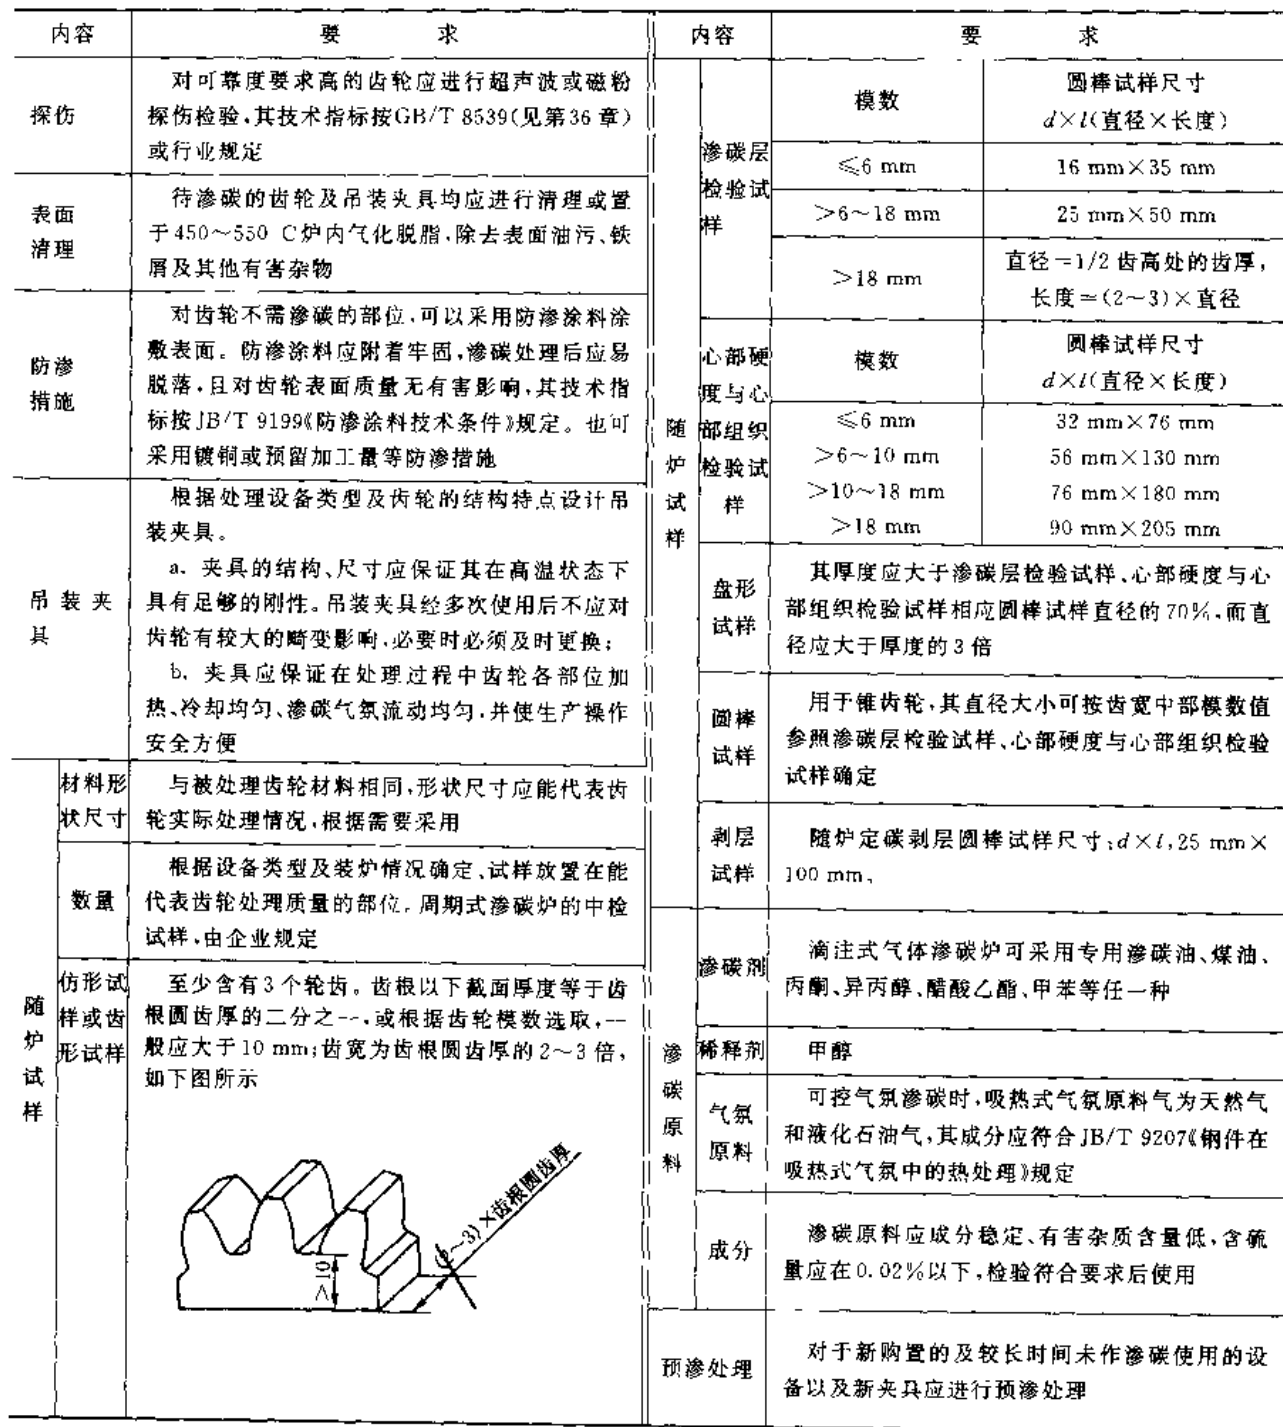 内容
要 求
探伤
对可靠度要求高的齿轮应进行超声波或磁粉
探伤检验,其技术指标按GB/T 8539(见第36章)
或行业规定
表面
清理
待渗碳的齿轮及吊装夹具均应进行清理或置
于450～550 C炉内气化脱脂,除去表面油污、铁
屑及其他有害杂物
防渗
措施
对齿轮不需渗碳的部位,可以采用防渗涂料涂
敷表面。防渗涂料应附着牢固,渗碳处理后应易
脱落,且对齿轮表面质量无有害影响,其技术指
标按JB/T 9199《防渗涂料技术条件》规定。也可
采用镀铜或预留加工量等防渗措施
吊装夹
具
根据处理设备类型及齿轮的结构特点设计吊
装夹具。
a. 夹具的结构、尺寸应保证其在高温状态下
具有足够的刚性。吊装夹具经多次使用后不应对
齿轮有较大的畸变影响,必要时必须及时更换;
b. 夹具应保证在处理过程中齿轮各部位加
热、冷却均匀、渗碳气氛流动均匀,并使生产操作
安全方便
随
炉
试
样
材料形
状尺寸
与被处理齿轮材料相同,形状尺寸应能代表齿
轮实际处理情况,根据需要采用
数量
根据设备类型及装炉情况确定、试样放置在能
代表齿轮处理质量的部位。周期式渗碳炉的中检
试样,由企业规定
仿形试
样或齿
形试样
至少含有3个轮齿。齿根以下截面厚度等于齿
根圆齿厚的二分之一,或根据齿轮模数选取,一
般应大于10 mm;齿宽为齿根圆齿厚的2～3倍,
如下图所示
>10
(2～3)×齿根圆齿厚
内容
要 求
随
炉
试
样
渗碳层
检验试
样
模数
圆棒试样尺寸
d×l(直径×长度)
≤6 mm
16 mm×35 mm
>6～18 mm
25 mm×50 mm
>18 mm
直径=1/2齿高处的齿厚,
长度=(2～3)×直径
心部硬
度与心
部组织
检验试
样
模数
圆棒试样尺寸
d×l(直径×长度)
≤6 mm
32 mm×76 mm
>6～10 mm
56 mm×130 mm
>10～18 mm
76 mm×180 mm
>18 mm
90 mm×205 mm
盘形
试样
其厚度应大于渗碳层检验试样、心部硬度与心
部组织检验试样相应圆棒试样直径的70%,而直
径应大于厚度的3倍
圆棒
试样
用于锥齿轮,其直径大小可按齿宽中部模数值
参照渗碳层检验试样、心部硬度与心部组织检验
试样确定
剥层
试样
随炉定碳剥层圆棒试样尺寸:d×l,25 mm×
100 mm。
渗
碳
原
料
渗碳剂
滴注式气体渗碳炉可采用专用渗碳油、煤油、
丙酮、异丙醇、醋酸乙酯、甲苯等任一种
稀释剂
甲醇
气氛
原料
可控气氛渗碳时,吸热式气氛原料气为天然气
和液化石油气,其成分应符合JB/T 9207《钢件在
吸热式气氛中的热处理》规定
成分
渗碳原料应成分稳定、有害杂质含量低,含硫
量应在0.02%以下,检验符合要求后使用
预渗处理
对于新购置的及较长时间未作渗碳使用的设
备以及新夹具应进行预渗处理